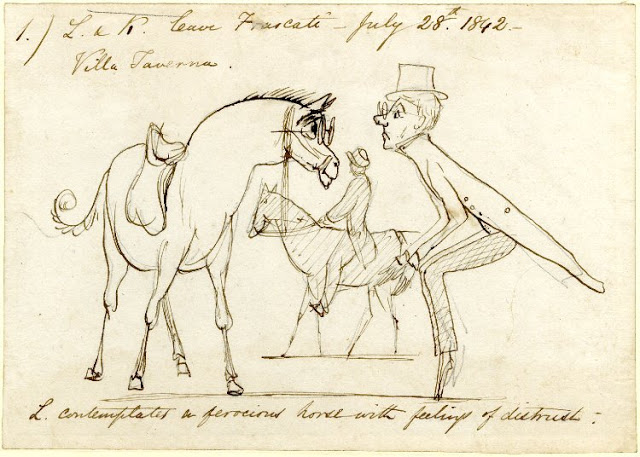 1.) L. & K. leave Frascati – July 28th. 1842. –
Villa Taverna.
L. contemplates a ferocious horse with feelings of distrust –